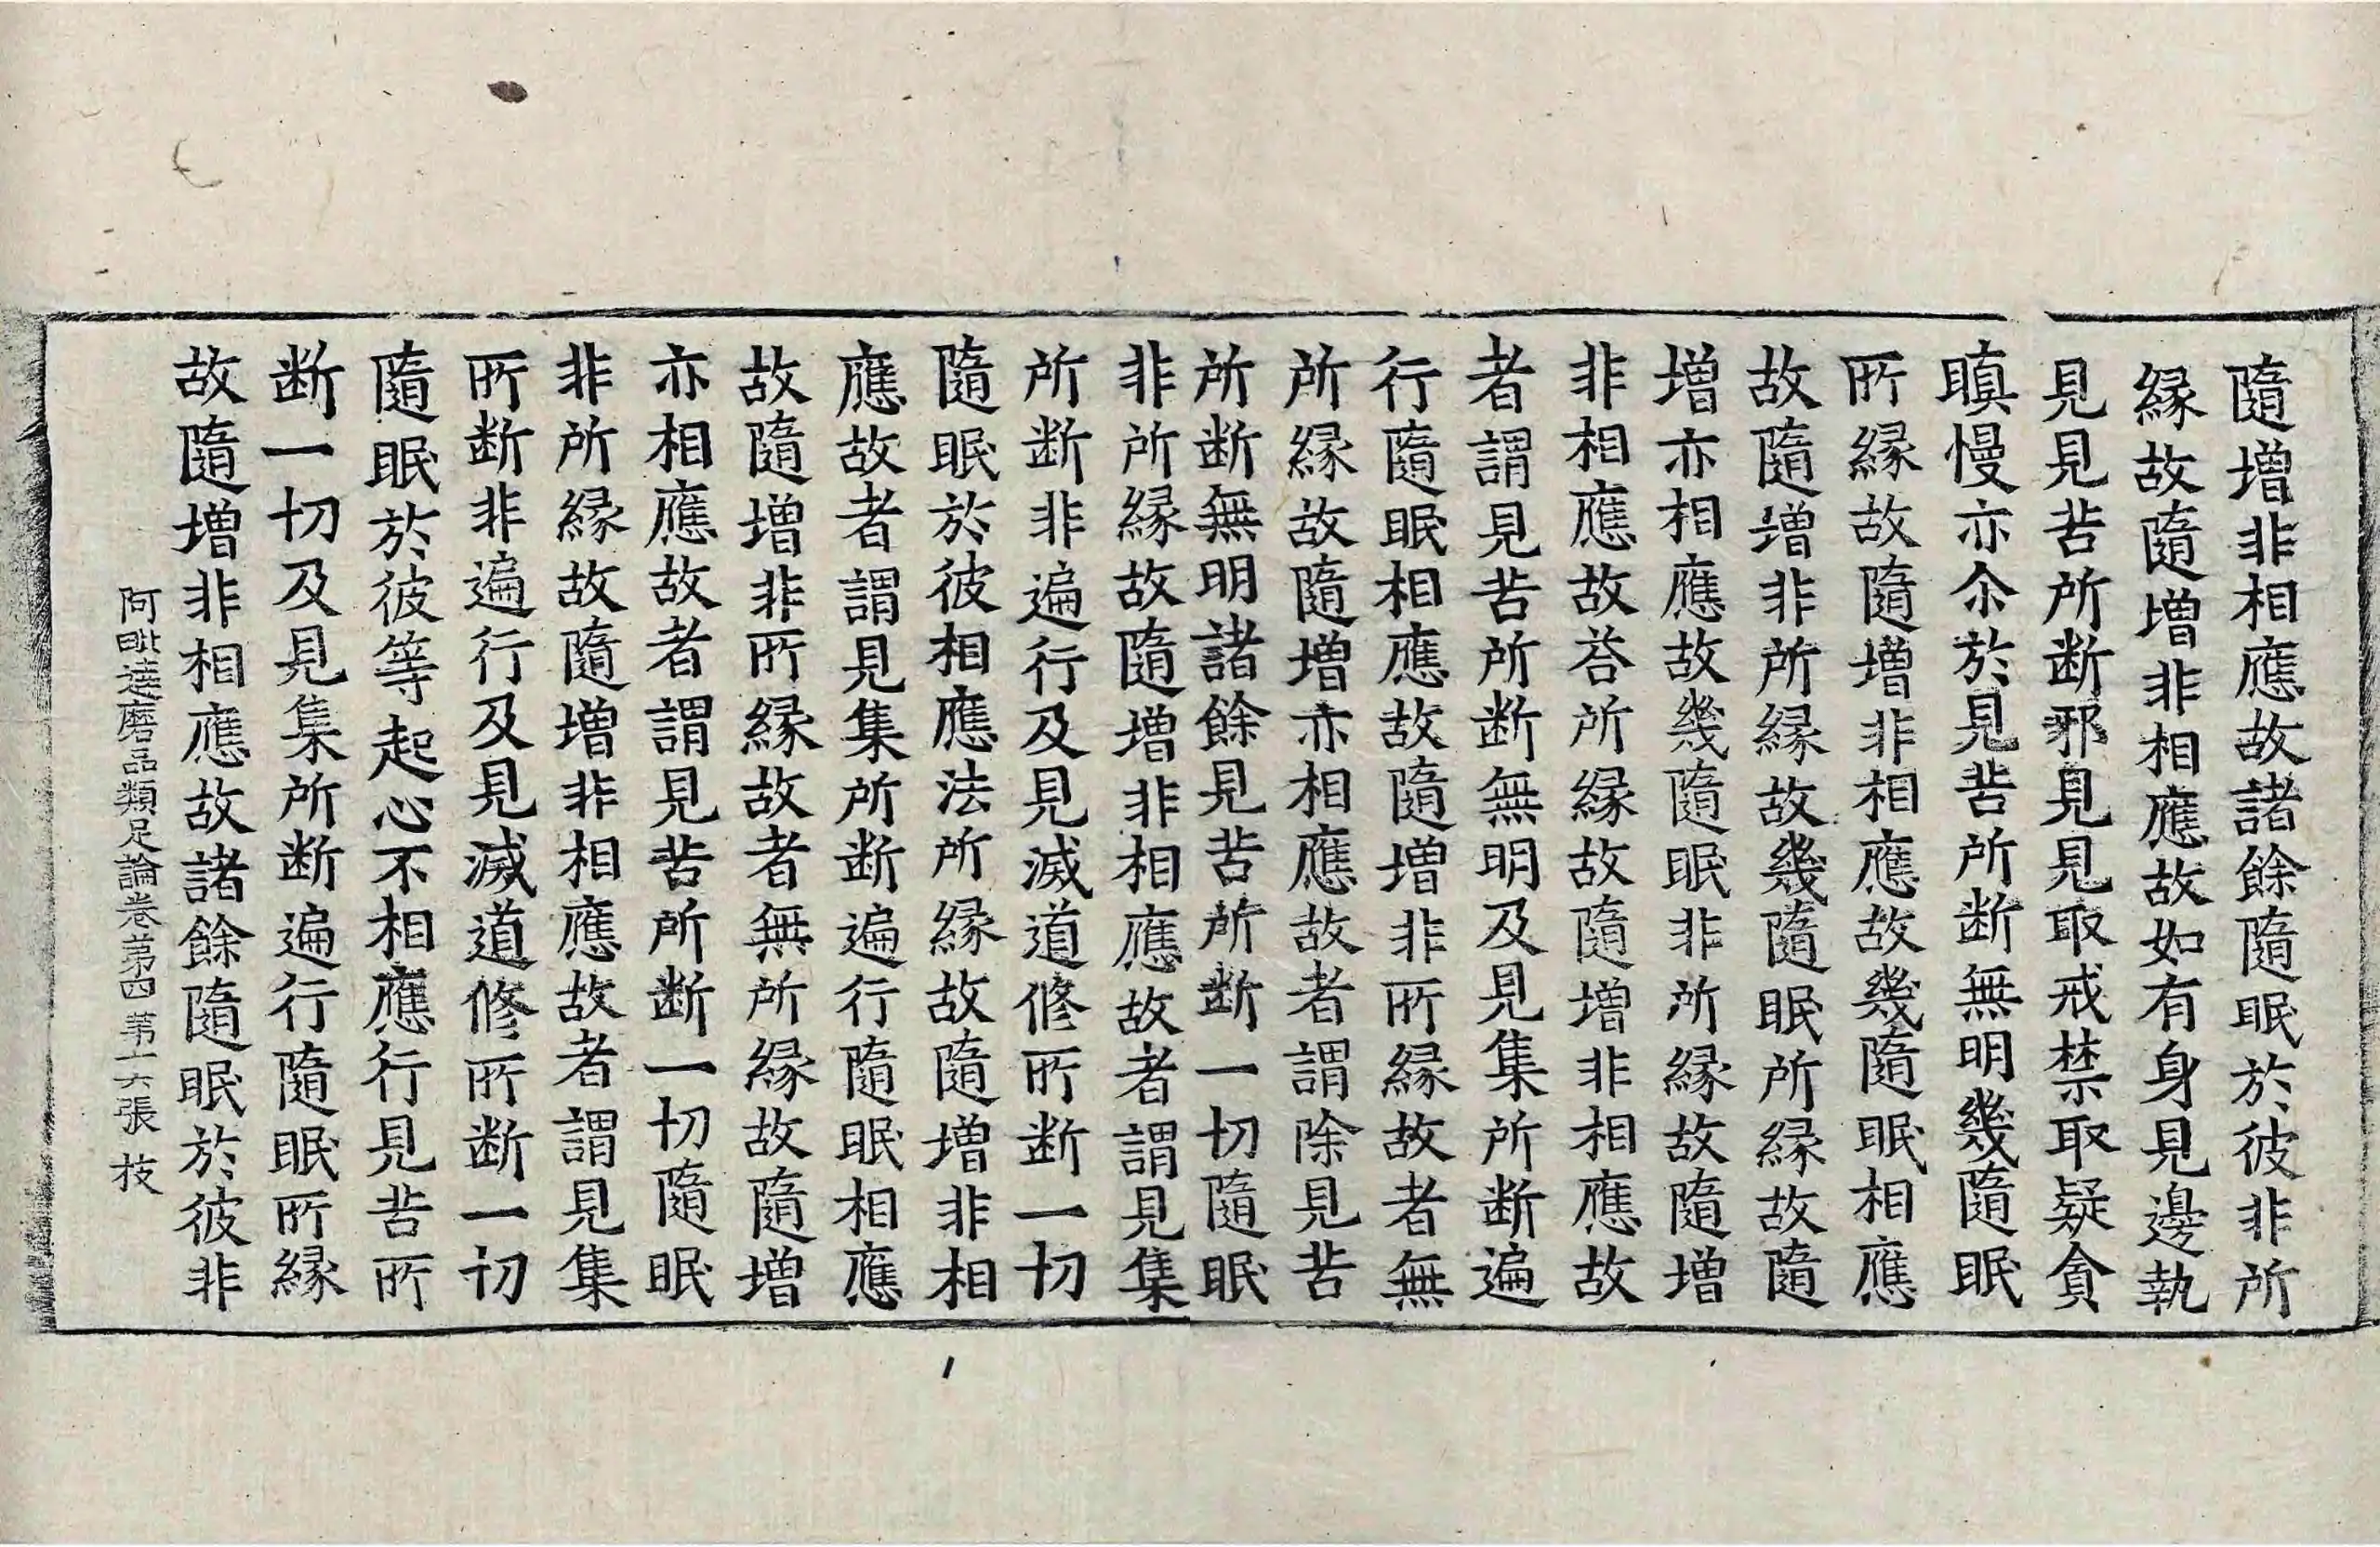 隨增非相應故諸餘隨眠於彼非所
緣故隨增非相應故如有身見邊執
見見苦所断邪見見取戒禁取疑貪
瞋慢亦尒於見苦所断無明幾隨眠
所緣故隨增非相應故幾隨眠相應
故隨增非所緣故幾隨眠所緣故隨
增亦相應故幾隨眠非所緣故隨增
非相應故荅所緣故隨增非相應故
者謂見苦所断無明及見集所断遍
行隨眠相應故隨增非所緣故者無
所緣故隨增亦相應故者謂除見苦
所断無明諸餘見苦所断一切隨眠
非所緣故隨增非相應故者謂見集
所断非遍行及見滅道修所断一切
隨眠於彼相應法所緣故隨增非相
應故者謂見集所断遍行隨眠相應
故隨增非所緣故者無所緣故隨增
亦相應故者謂見苦所断一切隨眠
非所緣故隨增非相應故者謂見集
所断非遍行及見滅道修所断一切
隨眠於彼等起心不相應行見苦所
断一切及見集所断遍行隨眠所緣
故隨增非相應故諸餘隨眠於彼非
阿毗達磨品類足論卷第四 第十六張 枝